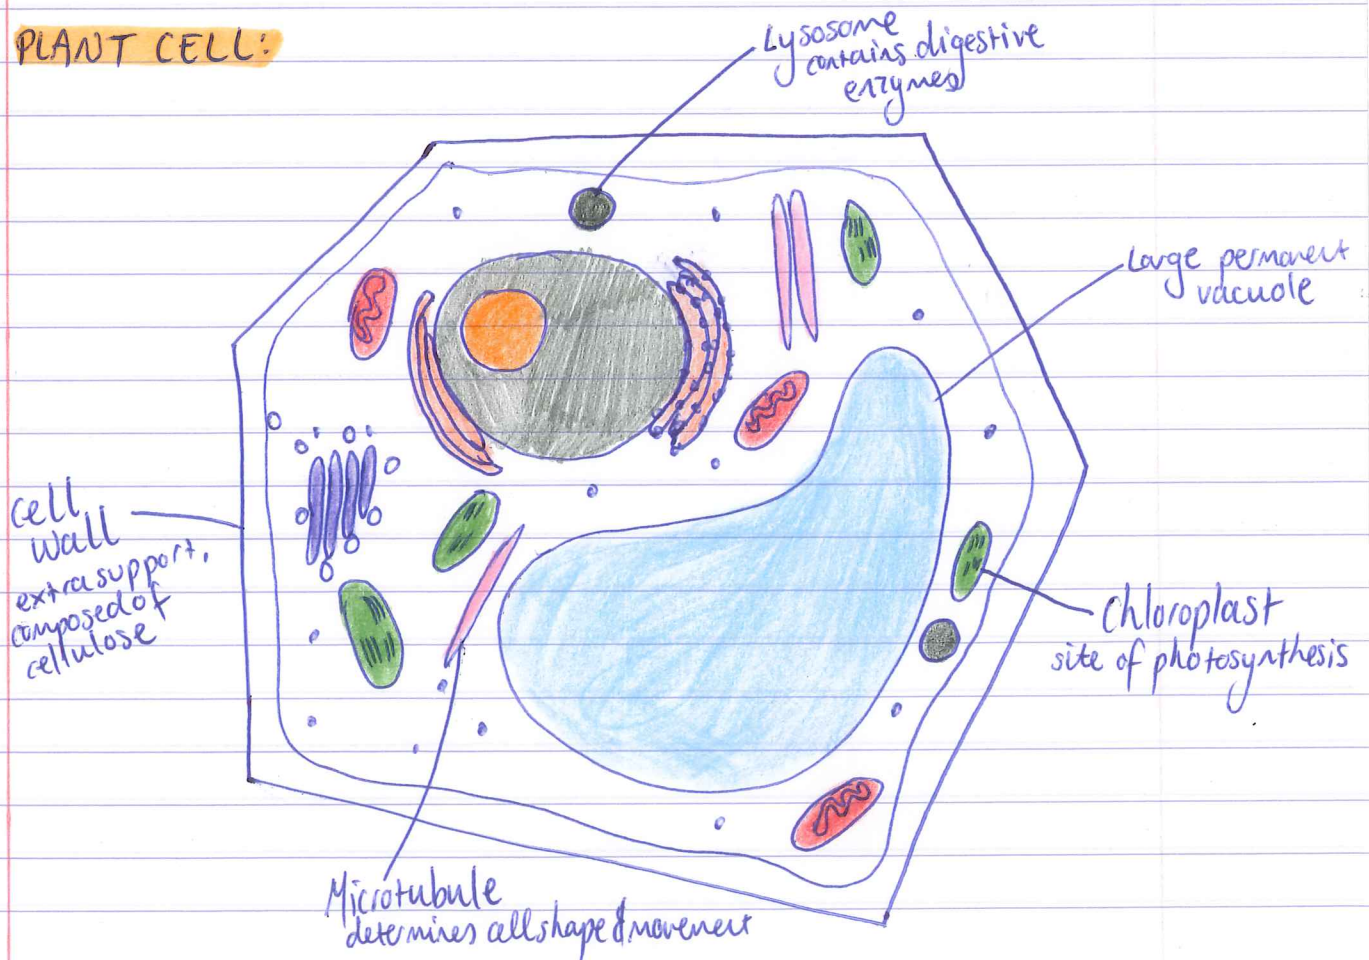 PLANT CELL:
Lysosome
contains digestive
enzymes
Large permanent
vacuole
cell
wall
extra support,
composed of
cellulose
Chloroplast
site of photosynthesis
Microtubule
determines cell shape & movement